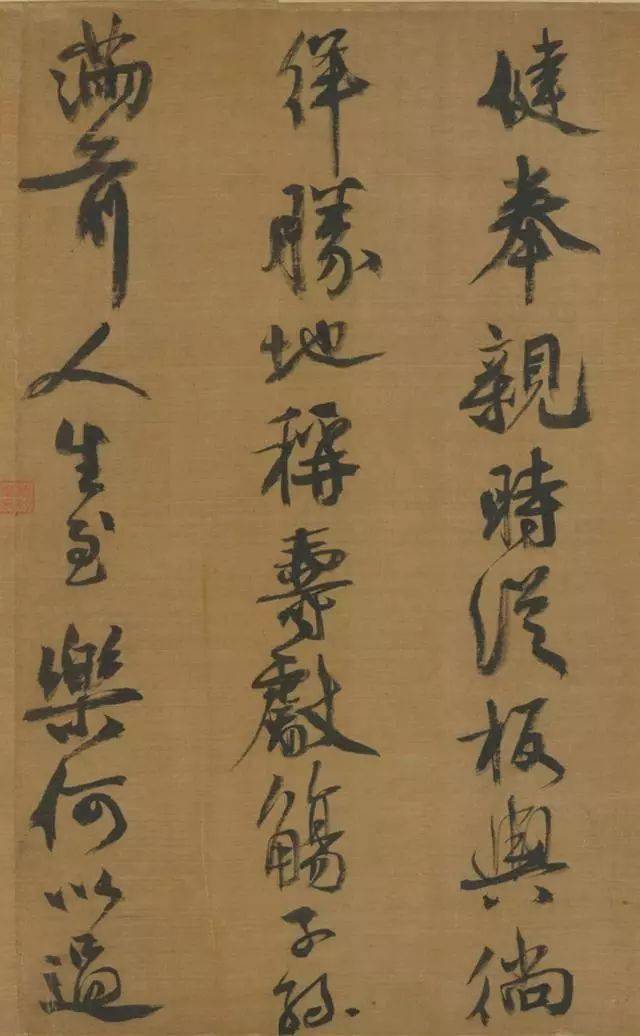 健奉親時從板輿徜
徉勝地稱壽獻觴子孫
滿前人生至樂何以過